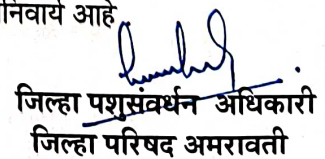 निवार्य आहे
जिल्हा पशुसंवर्धन अधिकारी
जिल्हा परिषद अमरावती